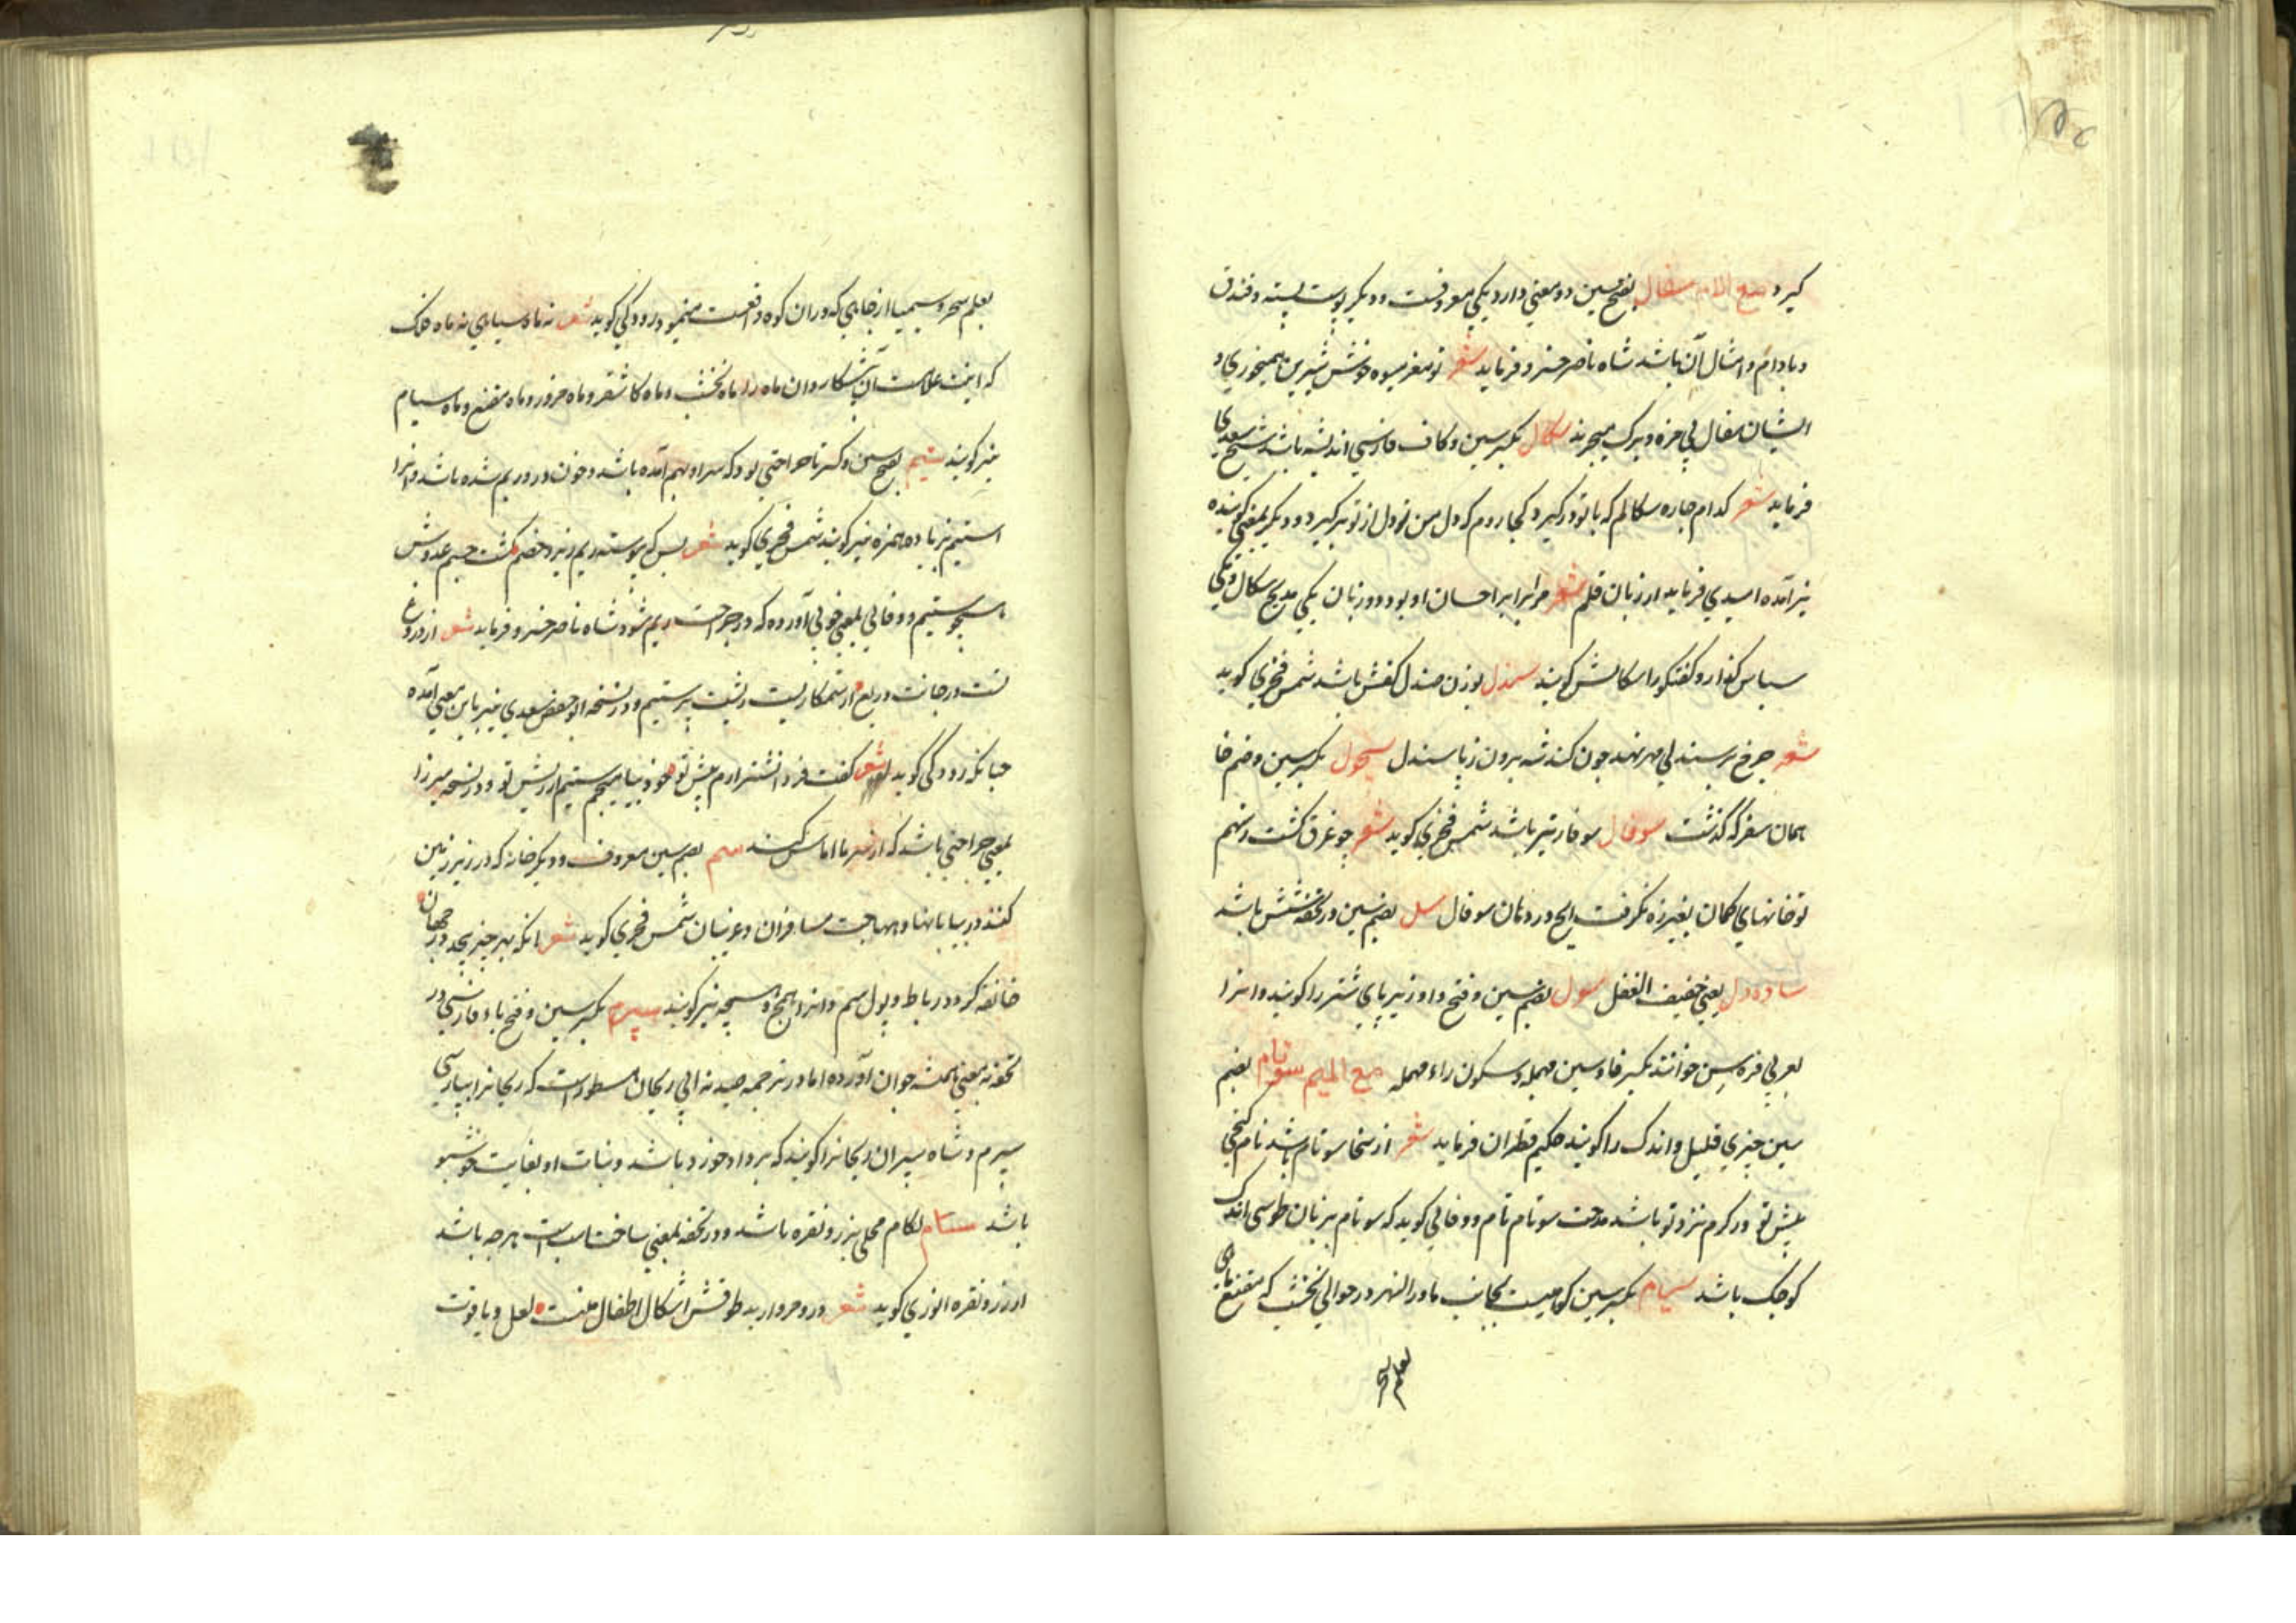 گیرد مع اللام سفال بفتح سین دو معنی دارد یکی معروفست و دیگر پوست پسته و فندق
و بادام و امثال آن باشد شاه ناصر خسرو فرماید شعر تو مغز میوه خوش شیرین همیخوری و
ایشان سفال بی مزه و برک میچرند سکال بکسر سین و کاف فارسی اندیشه باشد شیخ سعدی
فرماید شعر کدام چاره سکالم که با تو درگیرد کجا روم که دل من دل از تو برگیرد و دیگر بمعنی گوینده
نیز آمده اسیدی فرماید از زبان قلم شعر مر ابرابر احسان او بود دو زبان یکی مدیح سکال و یکی
سپاس گذار و گفتگو را سکالش گویند سندل بوزن صندل کفش باشد شمس فخری گوید
شعر چرخ بر سندلی مهر نهد چون کند شه برون ز پا سندل سحول بکسر سین و ضم خا
همان سغر که گذشت سوفال سوفار تیر باشد شمس فخری گوید شعر چو غرق گشت ز سهم
تو خانهای کمان بغیر زه نگرفت ایچ در دهان سوفال سل بضم سین در تحفه شش باشد
ساده دل یعنی خفیف العقل سول بضم سین و فتح واو زیر پای شتر را گویند و انرا
بعربی فرسن خوانند بکسر فا و سین مهمله و سکون راء مهمله مع المیم سوتام بضم
سین چیزی قلیل و اندک را گویند حکیم قطران فرماید شعر از سخا سوتام باشد نام گنجی
پیش تو در کرم نزد تو باشد مدحت سوتام تام و وفائی گوید که سوتام بزبان طوسی اندک
کوچک باشد سیام بکسر سین کوهیست بجانب ماورالنهر در حوالی نخشب که مقنع ماهی
بعلم سحر
بعلم سحر و سیمیا از چاهی که در ان کوه واقعست مینمود رودکی گوید شعر نه ماه سیامی نه ماه فلک
که اینت غلامست و آن پیشکار و ان ماه را ماه نخشب و ماه کاشغر و ماه مزور و ماه مقنع و ماه سیام
نیز گویند ستیم بفتح سین و کسر تا جراحتی بود که سر او بهم آمده باشد و خون در و ریم شده باشد و انرا
استیم بزیاده همزه نیز گویند شمس فخری گوید شعر بس که پیوسته ریم ریزد خصم گشت جسم عدوش
همچو ستیم و وفائی بمعنی خونی آورده که در جراحت ریم شود شاه ناصر خسرو فرماید شعر از دروغ
تست در جانت دریغ از ستمکاریست ریشت پر ستیم و در نسخه ابو حفص سعدی نیز باین معنی آمده
چنانکه رودکی گوید شعر گفت فردا نشتر ارم پیش تو خود بیاهیجم ستیم از ریش تو و در نسخه میرزا
بمعنی جراحتی باشد که از سرما اماس کند سم بضم سین معروف و دیگر خانه که در زیر زمین
کنند در بیابانها و مهاجهت مسافران و غریبان شمس فخری گوید شعر انکه بهر چیز بیحد در جهان
خانقه کرد و رباط و پول سم و انرا سمج و سمچه نیز گویند سپرم بکسر سین و فتح باء فارسی در
تحفه بمعنی همیشه جوان آورده اما در ترجمه صیدنه ابی ریحان مسطورست که ریحانرا بپارسی
سپرم و شاه سپران ریحانرا گویند که برد او خورد باشد و نبات او بغایت خوشبو
باشد ستام لگام محلی بزر و نقره باشد و در تحفه بمعنی ساخت اسب است هرچه باشد
از زر و نقره انوری گوید شعر در و مروارید طوقش اشکال اطفال منست لعل و یاقوت